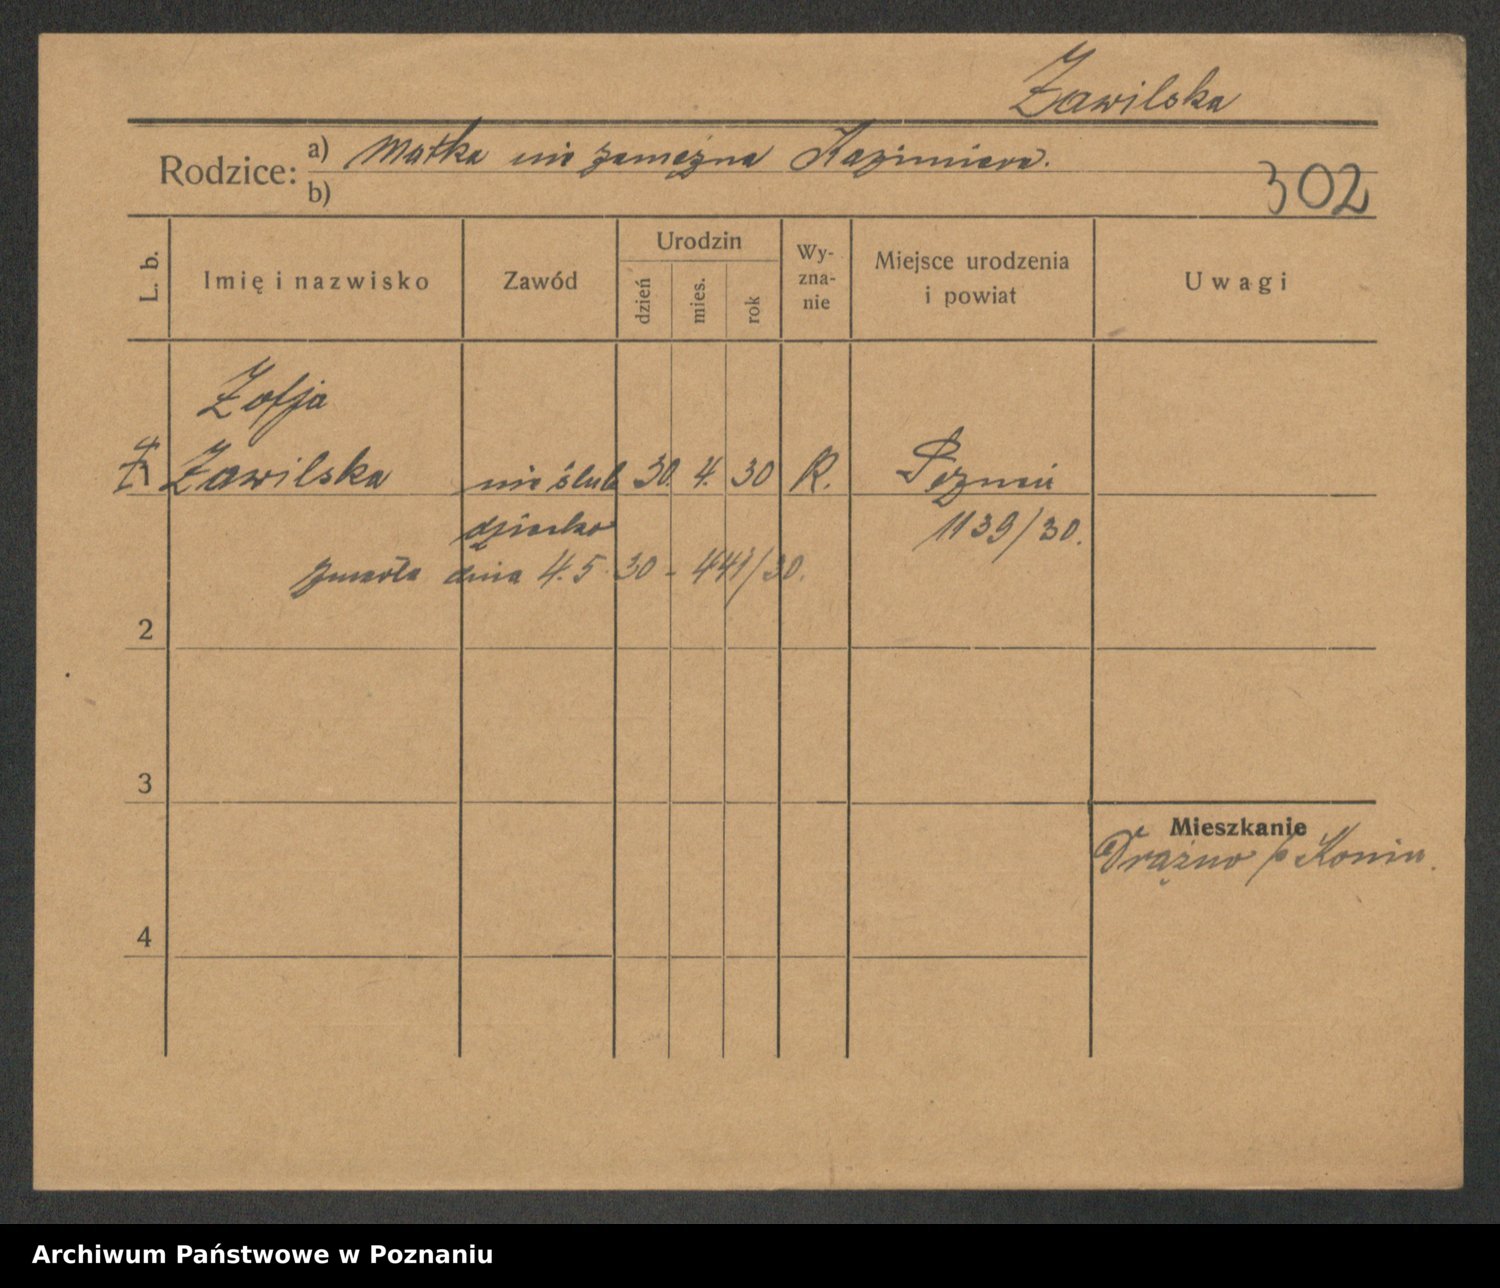 Zawilska
Rodzice: a) Matka nie zamężna Kazimiera.
b)
302
L. b. Imię i nazwisko Zawód Urodzin dzień mies. rok Wy-zna-nie Miejsce urodzenia i powiat Uwagi
Zofja
1 Zawilska nie ślub 30. 4. 30 R. Poznań
dziecko 1139/30.
zmarła dnia 4. 5. 30 - 441/30.
2
3
Mieszkanie
Drążno /p Konin.
4
Archiwum Państwowe w Poznaniu